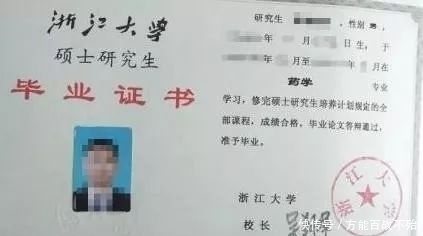 浙江大学
硕士研究生
毕业证书
研究生 ，性别 男 ，
年 月 日生，于
年 月至 年 月在
药学 专业
学习，修完硕士研究生培养计划规定的全
部课程，成绩合格，毕业论文答辩通过，
准予毕业。
浙江大学
校长
浙江大
快传号/方能百战不殆